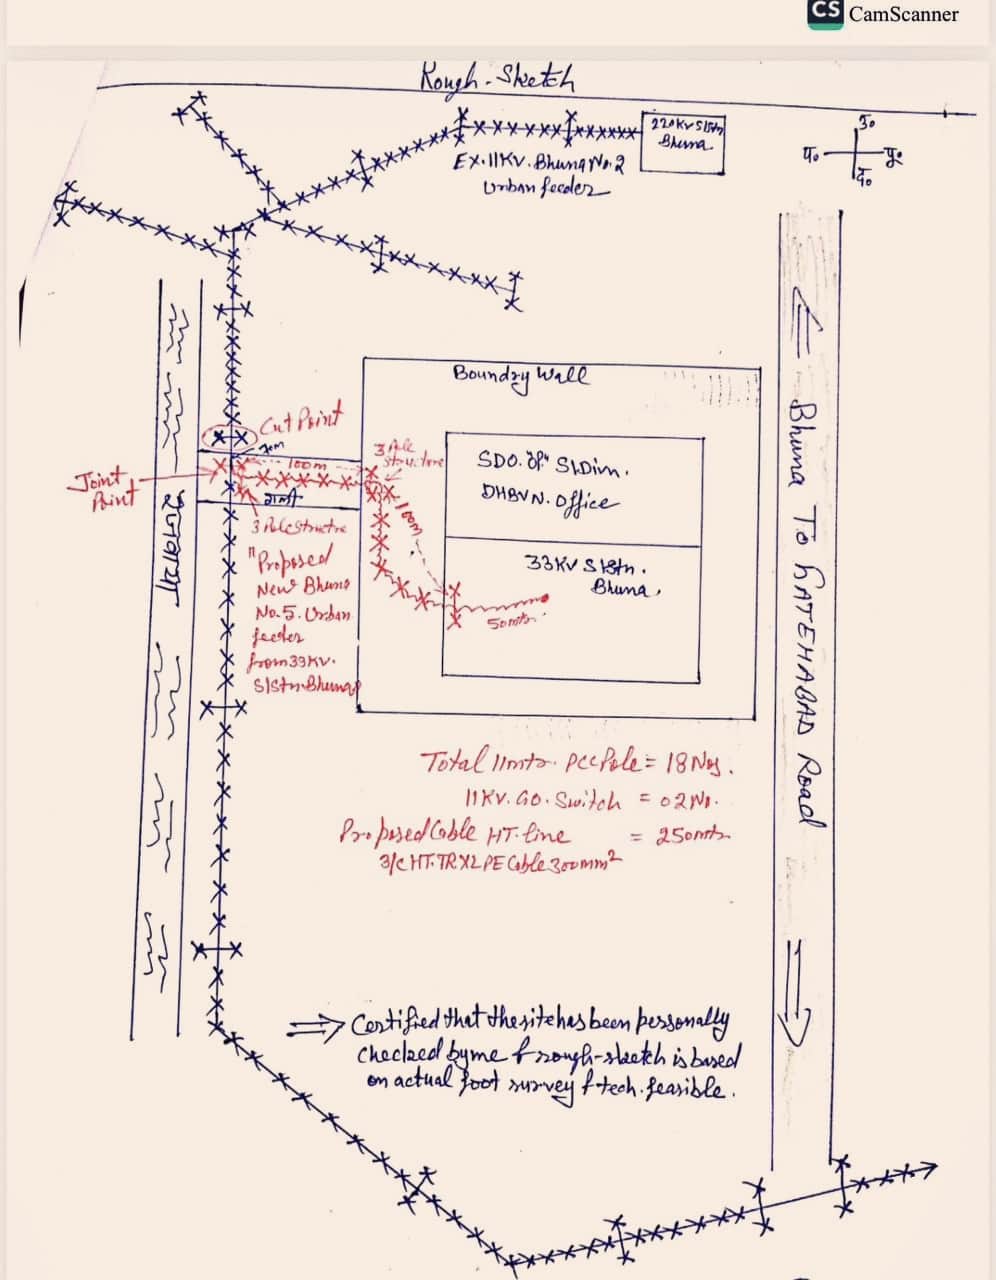 CS CamScanner
Rough-Sketch
220KV S/Stn
Bhuna
Ex. 11KV. Bhuna No. 2
Urban feeder
उ०
प० पू०
द०
Boundry Wall
Cut Point
100m
3 Pole
structure
Joint
Point
3 Pole structre
"Proposed
New Bhuna
No. 5. Urban
feeder
from 33KV.
S/Stn Bhuna"
100m
SDO. OP. S/Divn.
DHBVN. Office
33KV S/Stn.
Bhuna.
50mtr.
Bhuna To FATEHABAD Road
Total 11mtr. PCC Pole = 18 Nos.
11KV. GO. Switch = 02 No.
Proposed Cable HT. line = 250mtr
3/C HT. TR XLPE Cable 300mm²
⇒ Certified that the site has been personally
checked by me & rough-sketch is based
on actual foot survey & tech. feasible.